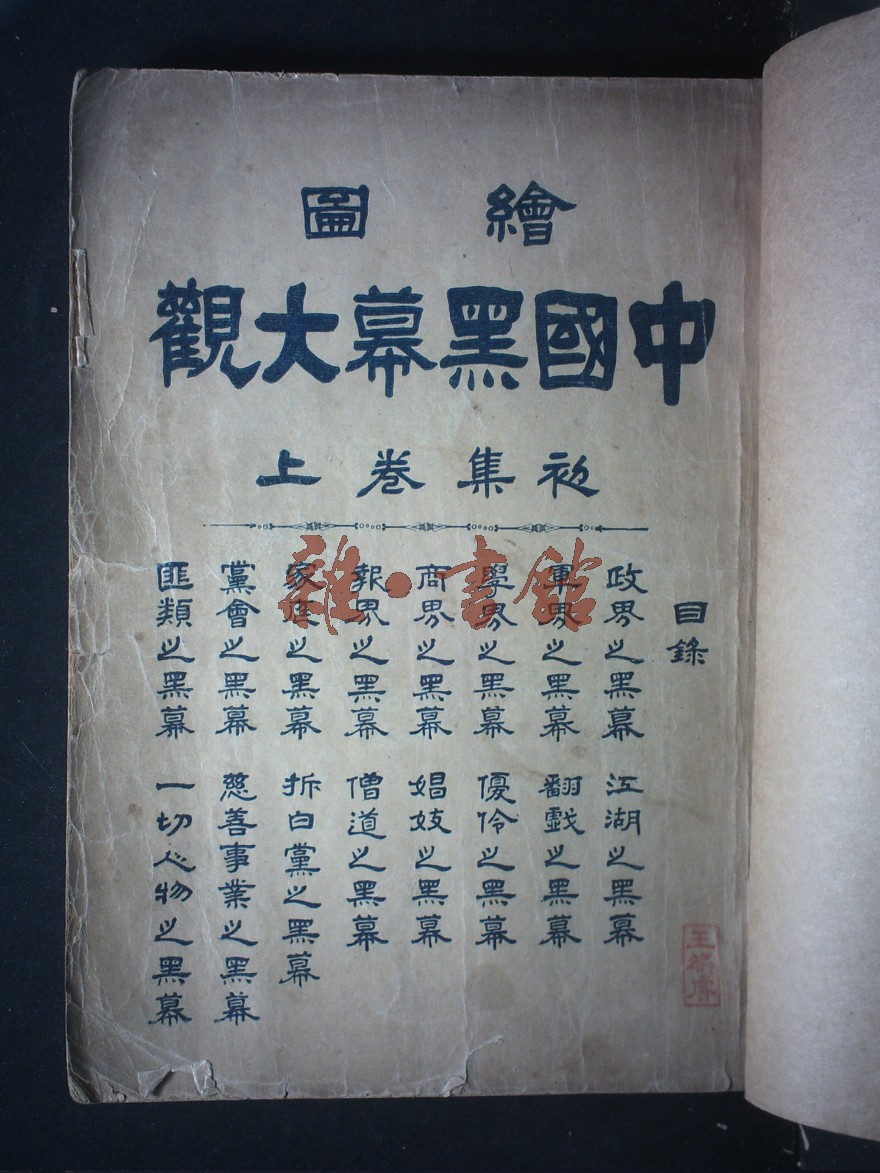 繪圖
中國黑幕大觀
初集卷上
目錄
政界之黑幕
軍界之黑幕
學界之黑幕
商界之黑幕
報界之黑幕
家庭之黑幕
黨會之黑幕
匪類之黑幕
江湖之黑幕
翻戲之黑幕
優伶之黑幕
娼妓之黑幕
僧道之黑幕
拆白黨之黑幕
慈善事業之黑幕
一切人物之黑幕
雜·書館